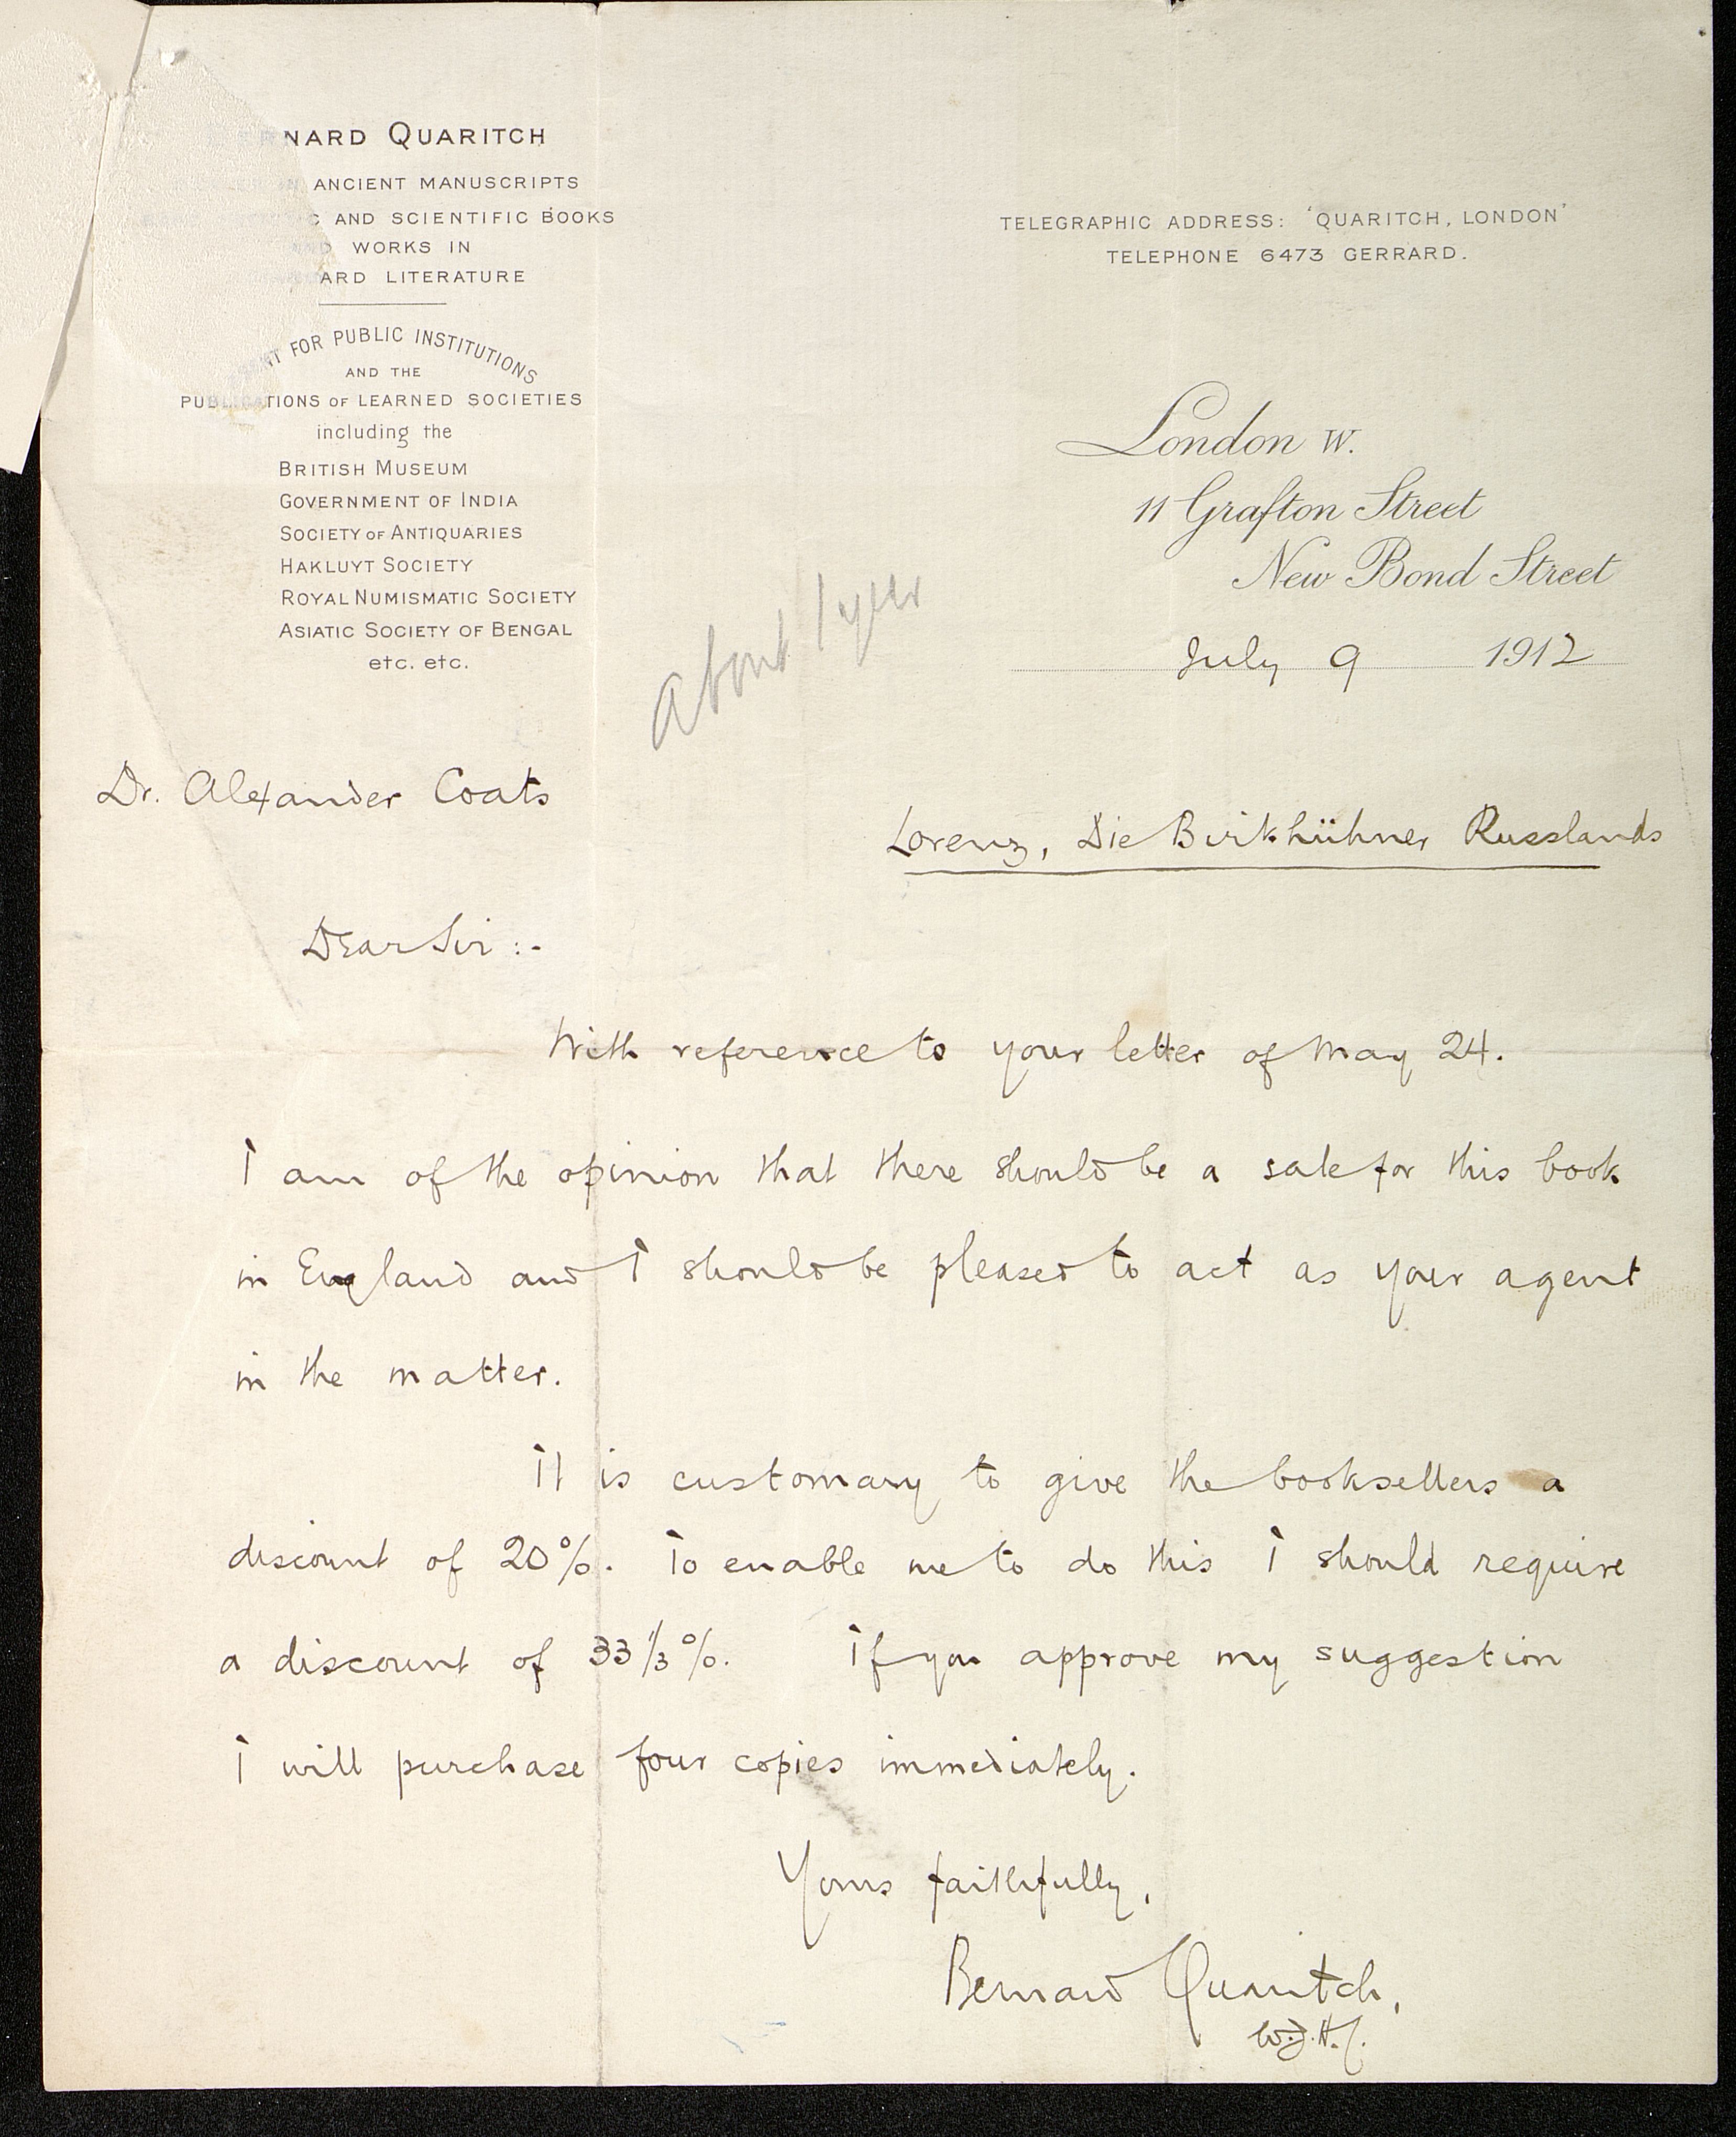 NARD QUARITCH
ANCIENT MANUSCRIPTS
C AND SCIENTIFIC BOOKS
AND WORKS IN
ARD LITERATURE
AGENT FOR PUBLIC INSTITUTIONS
AND THE
PUBLICATIONS OF LEARNED SOCIETIES
including the
BRITISH MUSEUM
GOVERNMENT OF INDIA
SOCIETY OF ANTIQUARIES
HAKLUYT SOCIETY
ROYAL NUMISMATIC SOCIETY
ASIATIC SOCIETY OF BENGAL
etc. etc.
TELEGRAPHIC ADDRESS: 'QUARITCH, LONDON'
TELEPHONE 6473 GERRARD.
London W.
11 Grafton Street
New Bond Street
July 9 1912
About 1 year
Dr. Alexander Coats
Lorenz, Die Birkhühner Russlands
Dear Sir :-
With reference to your letter of May 24.
I am of the opinion that there should be a sale for this book
in England and I should be pleased to act as your agent
in the matter.
It is customary to give the booksellers a
discount of 20%. To enable me to do this I should require
a discount of 33 1/3 %. If you approve my suggestion
I will purchase four copies immediately.
Yours faithfully,
Bernard Quaritch,